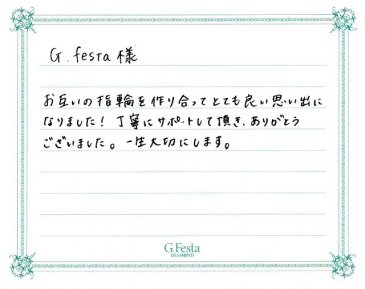 G.festa 様
お互いの指輪を作り合ってとても良い思い出に
なりました！丁寧にサポートして頂き、ありがとう
ございました。一生大切にします。
G.Festa
DIAMOND